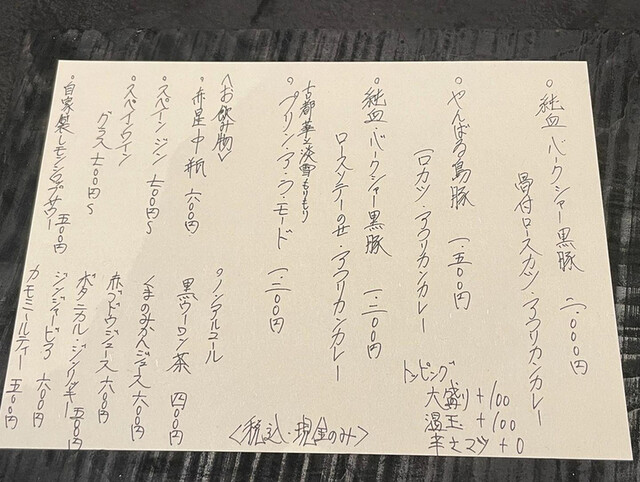 ○純血バークシャー黒豚 二、〇〇〇円
骨付ロースカツ・アフリカンカレー
○やんばる島豚 一、五〇〇円
一口カツ・アフリカンカレー
○純血バークシャー黒豚 一、二〇〇円
ロースソテーのせ・アフリカンカレー
古都華・淡雪もりもり
○プリン・ア・ラ・モード 一、二〇〇円
トッピング
大盛り +100
温玉 +100
辛さマシ +0
<お飲み物>
○赤星中瓶 六〇〇円
○スペインジン 七〇〇円〜
○スペインワイン
グラス 七〇〇円〜
○自家製レモンシロップサワー 五〇〇円
○ノンアルコール
黒ウーロン茶 四〇〇円
くまのみかんジュース 六〇〇円
赤ブドウジュース 六〇〇円
ボタニカル・ジンリッキー 五〇〇円
ジンジャービア 六〇〇円
カモミールティー 五〇〇円
<税込・現金のみ>